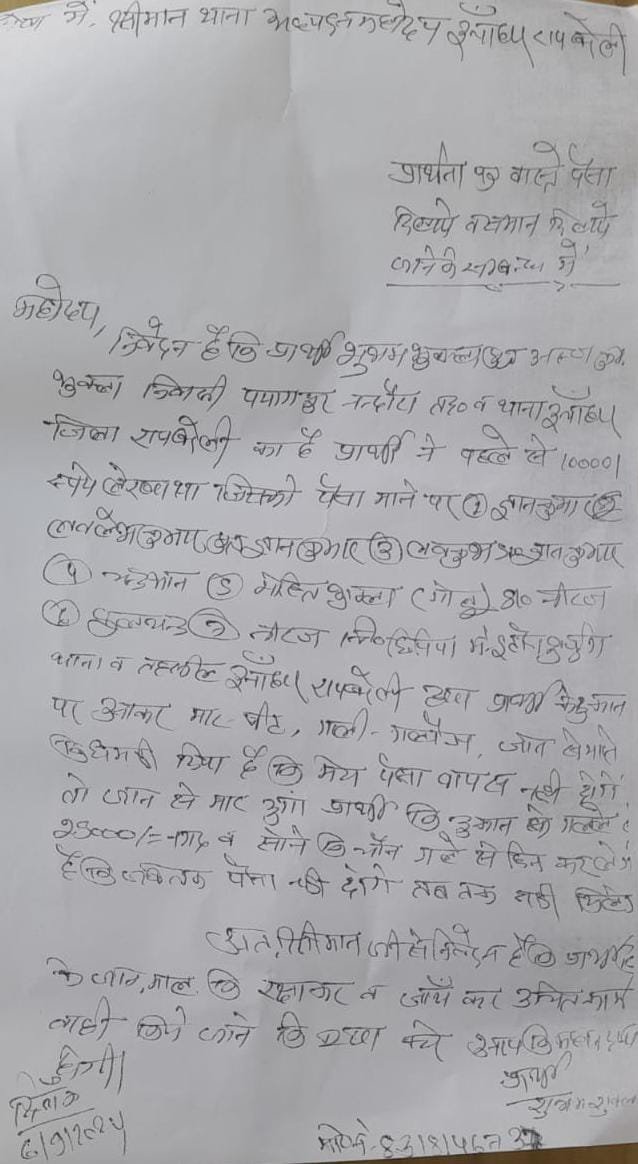 सेवा में, श्रीमान थाना अध्यक्ष महोदय ऊँचाहार रायबरेली
प्रार्थना पत्र वास्ते पैसा
दिलाये व सामान दिलाये
जाने के सम्बन्ध में
महोदय,
निवेदन है कि प्रार्थी शुभम शुक्ला पुत्र
शुक्ला निवासी पयागपुर नन्दौरा तह० व थाना ऊँचाहार
जिला रायबरेली का है प्रार्थी ने पहले से 10000/
रुपये ले रखा था जिसको पैसा मागने पर ① ज्ञान कुमार ②
लवलेश कुमार पुत्र ज्ञान कुमार ③ लवकुश पुत्र ज्ञान कुमार
④ ⑤ मोहित शुक्ला (गोलू) S/o नीरज
⑥ ⑦ नीरज नि०
थाना व तहसील ऊँचाहार रायबरेली द्वारा प्रार्थी के दुकान
पर आकर मार-पीट, गाली-गलौज, जान से मारने
कि धमकी दिया है कि मेरा पैसा वापस नही दोगे
तो जान से मार दूंगा प्रार्थी कि दुकान के गल्ले से
25000/= नगद व सोने कि चैन गले से छिन कर ले गये
है कि जबतक पैसा नही दोगे तब तक नही मिलेगा
अतः श्रीमान जी से निवेदन है कि प्रार्थी
के जान, माल कि रक्षा कर व जाँच कर उचित कार्य
वाही किये जाने कि कृपा करे आपकि महान दया
होगी।
प्रार्थी
शुभम शुक्ला
दिनांक